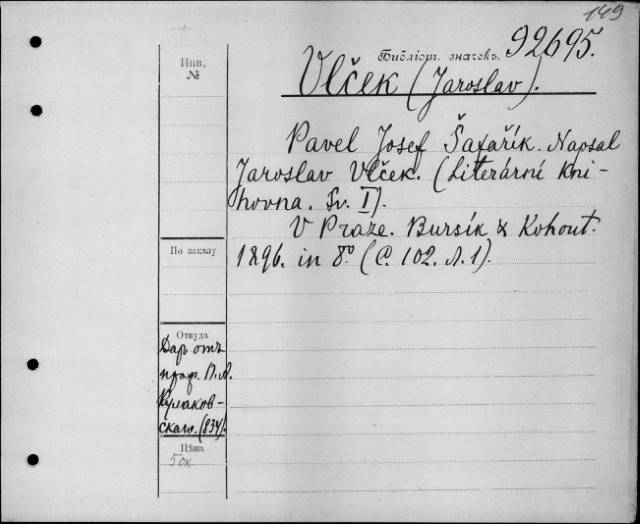 149
Библіот. значекъ. 92695.
Инв.
№
Vlček (Jaroslav).
Pavel Josef Šafařík. Napsal
Jaroslav Vlček. (Literární Kni-
hovna. Sv. I).
V Praze. Bursík & Kohout.
1896. in 8° (C. 102. л. 1).
По заказу
Откуда
Даръ отъ
проф. П. А.
Кулаков-
скаго. (834).
Цѣна
50к.